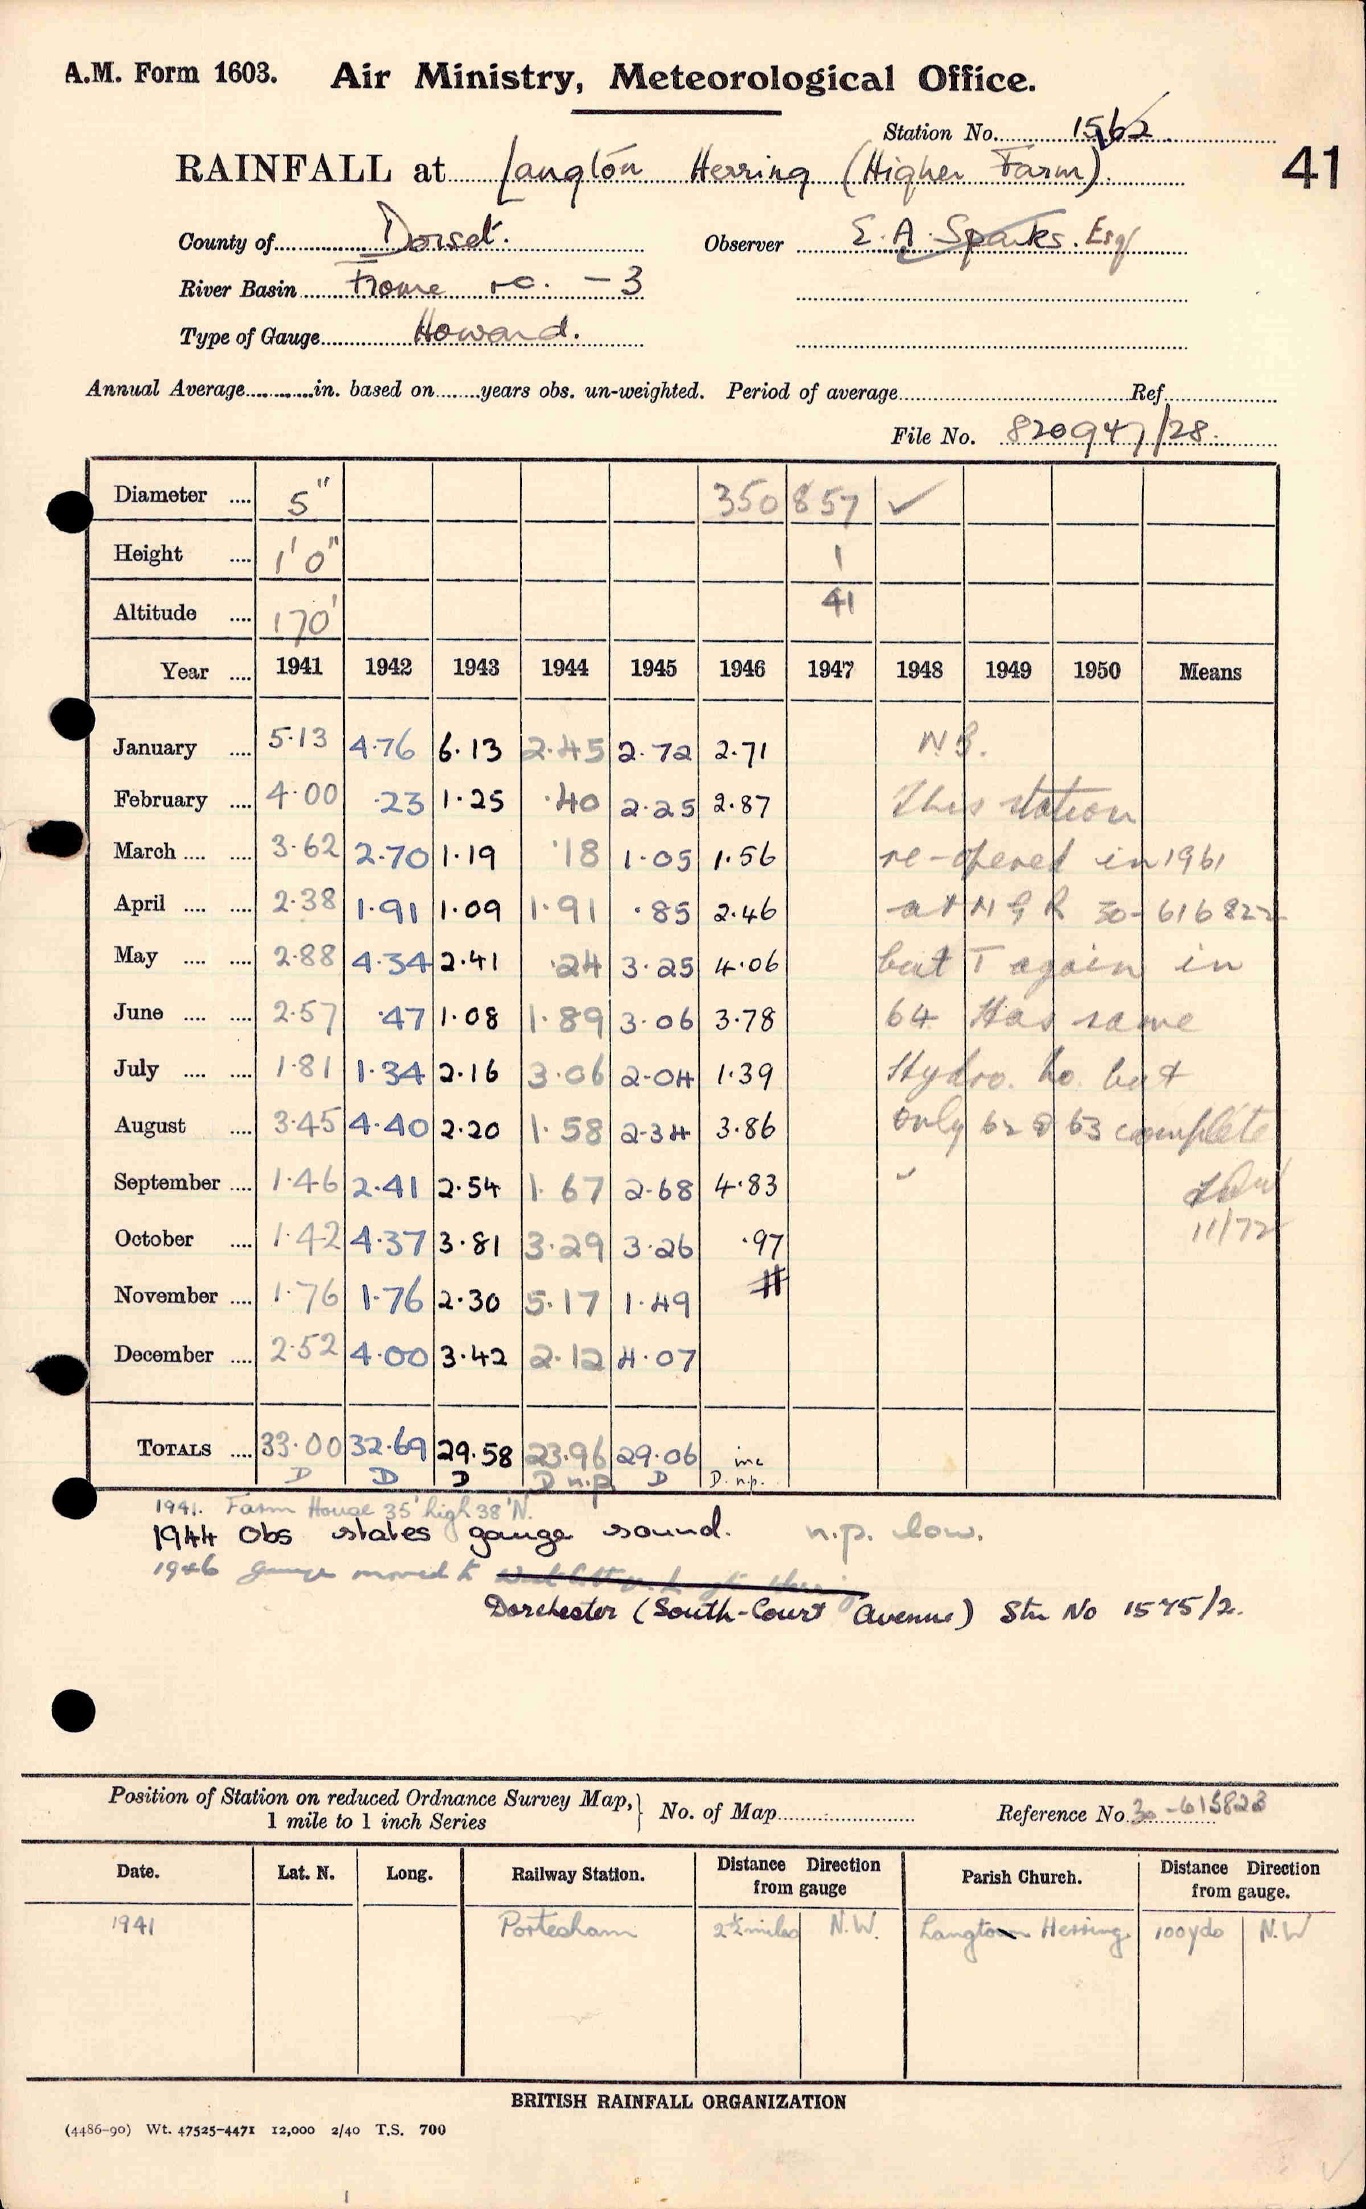 A.M. Form 1603. Air Ministry, Meteorological Office.
Station No. 1562
41
RAINFALL at Langton Herring (Higher Farm)
County of Dorset. Observer E. A. Sparks. Esq
River Basin Frome rc. - 3
Type of Gauge Howard.
Annual Average in. based on years obs. un-weighted. Period of average Ref
File No. 820947/28.
Diameter 5" 350 857 ✓
Height 1' 0" 1
Altitude 170' 41
Year 1941 1942 1943 1944 1945 1946 1947 1948 1949 1950 Means
January 5.13 4.76 6.13 2.45 2.72 2.71 N.B.
February 4.00 .23 1.25 .40 2.25 2.87 This station
March 3.62 2.70 1.19 .18 1.05 1.56 re-opened in 1961
April 2.38 1.91 1.09 1.91 .85 2.46 at NGR 30-616822
May 2.88 4.34 2.41 .24 3.25 4.06 but T again in
June 2.57 .47 1.08 1.89 3.06 3.78 64 Has same
July 1.81 1.34 2.16 3.06 2.04 1.39 Hydro. No. but
August 3.45 4.40 2.20 1.58 2.34 3.86 only 62 & 63 complete
September 1.46 2.41 2.54 1.67 2.68 4.83
October 1.42 4.37 3.81 3.29 3.26 .97 11/72
November 1.76 1.76 2.30 5.17 1.49
December 2.52 4.00 3.42 2.12 4.07
TOTALS 33.00 32.69 29.58 23.96 29.06 inc
D D D D n.p. D D. n.p.
1941. Farm House 35' high 38' N.
1944 Obs states gauge sound. n.p. low.
1946 gauge moved to
Dorchester (South-Court Avenue) Stn No 1575/2.
Position of Station on reduced Ordnance Survey Map, 1 mile to 1 inch Series } No. of Map Reference No. 30-615823
Date. Lat. N. Long. Railway Station. Distance Direction from gauge Parish Church. Distance Direction from gauge.
1941 Portesham 2½ miles N.W. Langton Herring. 100 yds N.W
BRITISH RAINFALL ORGANIZATION
(4486-90) Wt. 47525-4471 12,000 2/40 T.S. 700